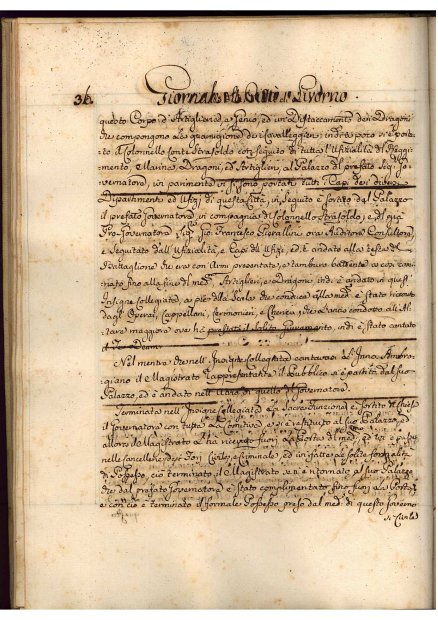 36.
Giornale della Città di Livorno
questo Corpo d'Artiglieria, e Genio, ed un Distaccamento dei Dragoni
che compongono la guarnigione di Cavalleggieri indi a poco si è porta
to il Colonnello Conte Strasoldo con seguito di tutta l'Ufizialità del Reggi
mento, Marina, Dragoni, ed Artiglieri, al Palazzo del prefato Sig. Go
vernatore, ivi parimente vi si sono portati tutti i Capi dei diversi
Dipartimenti ed Ufizj di questa Città, in seguito è sortito dal Palazzo
il prefato Governatore in compagnia del Colonnello Strasoldo, e del già
Pro Governatore Sig. Francesco Pierallini ora Auditore Consultore
e seguitato dall'Ufizialità, e Capi di Ufizj, ed è andato alla testa del
Battaglione che era con Armi presentate, e tamburo battente
fino alla fine del med. Artiglieri, e Dragoni indi è andato in quest'
Insigne Collegiata, a piè della Scala che conduce alla med. è stato ricevuto
dagli Operai, Cappellani, Cerimonieri, e Cherici, che l'hanno condotto all'Al
tare maggiore ove ha prestato il solito Giuramento, indi è stato cantato
il Te Deum.
Nel mentre che nell'Insigne Collegiata cantavasi l'Inno Ambro
giano il Magistrato rappresentante il Pubblico si è partito dal suo
Palazzo, ed è andato nell' di quello del Governatore.
Terminata nell'Insigne Collegiata la Sacra Funzione, è sortito di Chiesa
il Governatore con tutta la Comitiva, e si è restituito al suo Palazzo, ed
allora il Magistrato l'ha ricevuto fuori la Porta del med. ed ivi è
nelle Cancellerie dei Tri Civile, e Criminale ed ivi fatte le solite formalità
di Possesso, ciò terminato il Magistrato se n'è ritornato al suo Palazzo
che dal prefato Governatore è stato complimentato fino fuori la Porta
e con ciò è terminato il formale Possesso preso dal med. di questo Governo